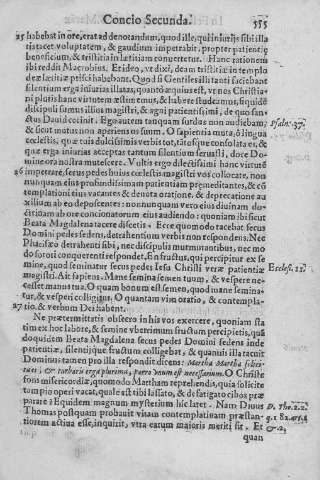 Concio Secunda. 555
25 habebat in ore, erat ad denotandum, quod ille, qui iniurijs sibi illa
tis tacet voluptatem, & gaudium impetrabit, propter patientiæ
beneficium, & tristitia in lætitiam conuertetur. Hanc rationem
ibi reddit Macrobius. Et ideo, vt dixi, deam tristitiæ in templo
deæ lætitiæ prisci habebant. Quod si Gentiles illi tanti faciebant
silentium erga iniurias illatas, quanto æquius est, vt nos Christia
ni pluris hanc virtutem æstimemus, & habere studeamus, siquidē
discipuli sumus illius magistri, & agni patientissimi, de quo san
ctus Dauid cecinit. Ego autem tanquam surdus non audiebam, Psalm. 37.
& sicut mutus non aperiens os suum. O sapientia muta, ô lingua
cœlestis, quæ tuis dulcissimis verbis tot, tātosque consolata es, &
quæ erga iniurias acceptas tantum silentium seruasti, doce Do
mine ora nostra mutescere. Vultis ergo dilectissimi hanc virtutē
26 impetrare, secus pedes huius cœlestis magistri vos collocate, non
nunquam eius profundissimam patientiam præmeditantes, & cō
templationi eius vacantes & deuota oratione, & deprecatione au
xilium ab eo deposcentes: nonnunquam vero eius diuinam do-
ctrinam ab ore concionatorum eius audiendo: quoniam ibi sicut
Beata Magdalena tacere discetis. Ecce quomodo tacebat secus
Domini pedes sedens, detrahentium verbis non respondens. Nec
Pharisæo detrahenti sibi, nec discipulis murmurantibus, nec mo
do sorori conquerenti respondet. En fructus, qui percipitur ex se
mine, quod seminatur secus pedes Iesu Christi veræ patientiæ Ecclesi. 11.
magistri. Ait sapiens. Mane semina semen tuum, & vespere ne
cesset manus tua. O quam bonum est semen, quod mane semina-
tur, & vesperi colligitur. O quantam vim oratio, & contempla-
27 tio, & verbum Dei habent.
Ne prætermittatis obsecro in his vos exercere, quoniam sta
tim ex hoc labore, & semine vberrimum fructum percipietis, quā
doquidem Beata Magdalena secus pedes Domini sedens inde
patientiæ, silentijque fructum colligebat, & quanuis illa tacuit
Dominus tamen pro illa respondit dicens: Martha Martha solici-
ta es, & turbaris erga plurima, porro vnum est necessarium. O Christe
fons misericordiæ, quomodo Martham reprehendis, quia solicite
tempio operi vacat, quale est tibi lassato, & defatigato cibos præ
parare? Equidem magnum mysterium hîc latet. Nam Diuus D. Tho. 2. 2.
Thomas postquam probauit vitam contemplatiuam præstan- q. 182. art. 1
tiorem actiua esse, inquirit, vtra earum maioris meriti sit. Et & 2.
quan